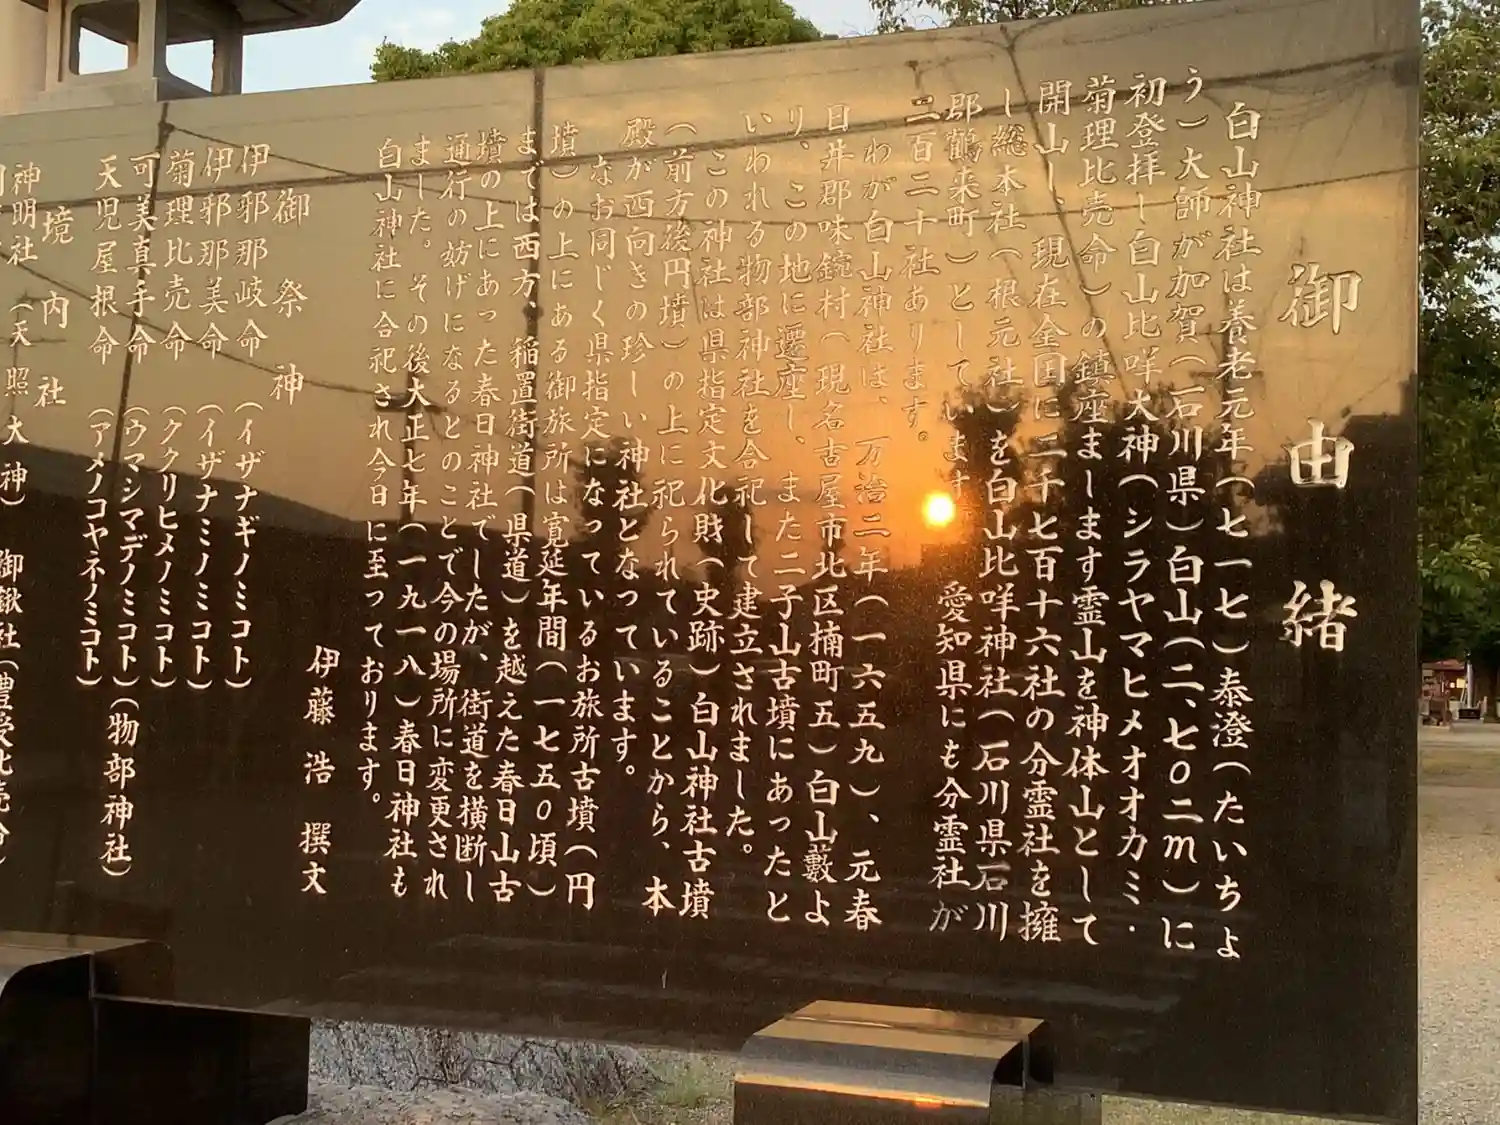 御由緒
白山神社は養老元年(七一七)泰澄(たいちょ
う)大師が加賀(石川県)白山(二、七〇二m)に
初登拝し白山比咩大神(シラヤマヒメオオカミ・
菊理比売命)の鎮座まします霊山を神体山として
開山し、現在全国に二千七百十六社の分霊社を擁
し総本社(根元社)を白山比咩神社(石川県石川
郡鶴来町)としています。愛知県にも分霊社が
二百二十社あります。
わが白山神社は、万治二年(一六五九)、元春
日井郡味鋺村(現名古屋市北区楠町五)白山藪よ
り、この地に遷座し、また二子山古墳にあったと
いわれる物部神社を合祀して建立されました。
この神社は県指定文化財(史跡)白山神社古墳
(前方後円墳)の上に祀られていることから、本
殿が西向きの珍しい神社となっています。
なお同じく県指定になっているお旅所古墳(円
墳)の上にある御旅所は寛延年間(一七五〇頃)
までは西方、稲置街道(県道)を越えた春日山古
墳の上にあった春日神社でしたが、街道を横断し
通行の妨げになるとのことで今の場所に変更され
ました。その後大正七年(一九一八)春日神社も
白山神社に合祀され今日に至っております。
伊藤 浩 撰文
御祭神
伊邪那岐命(イザナギノミコト)
伊邪那美命(イザナミノミコト)
菊理比売命(ククリヒメノミコト)
可美真手命(ウマシマデノミコト)(物部神社)
天児屋根命(アメノコヤネノミコト)
境内社
神明社(天照大神)御鍬社(豊受比売命)